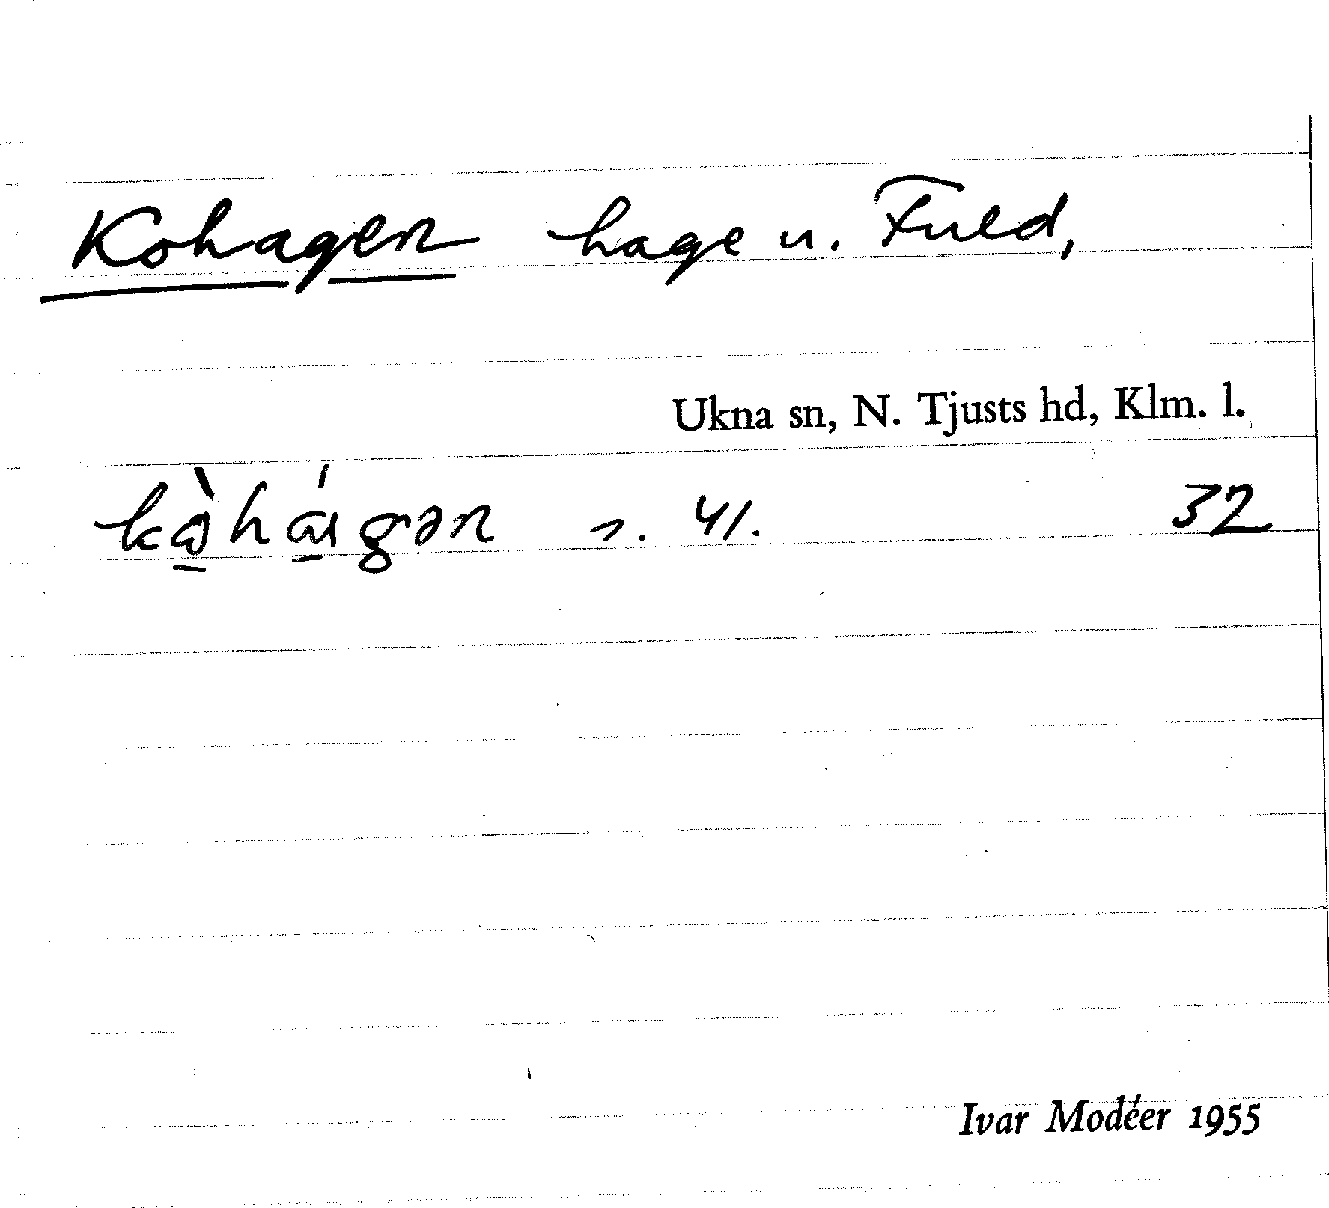 Kohagen hage u. Fuld,
Ukna sn, N. Tjusts hd, Klm. l.
s. 41. 32
Ivar Modéer 1955